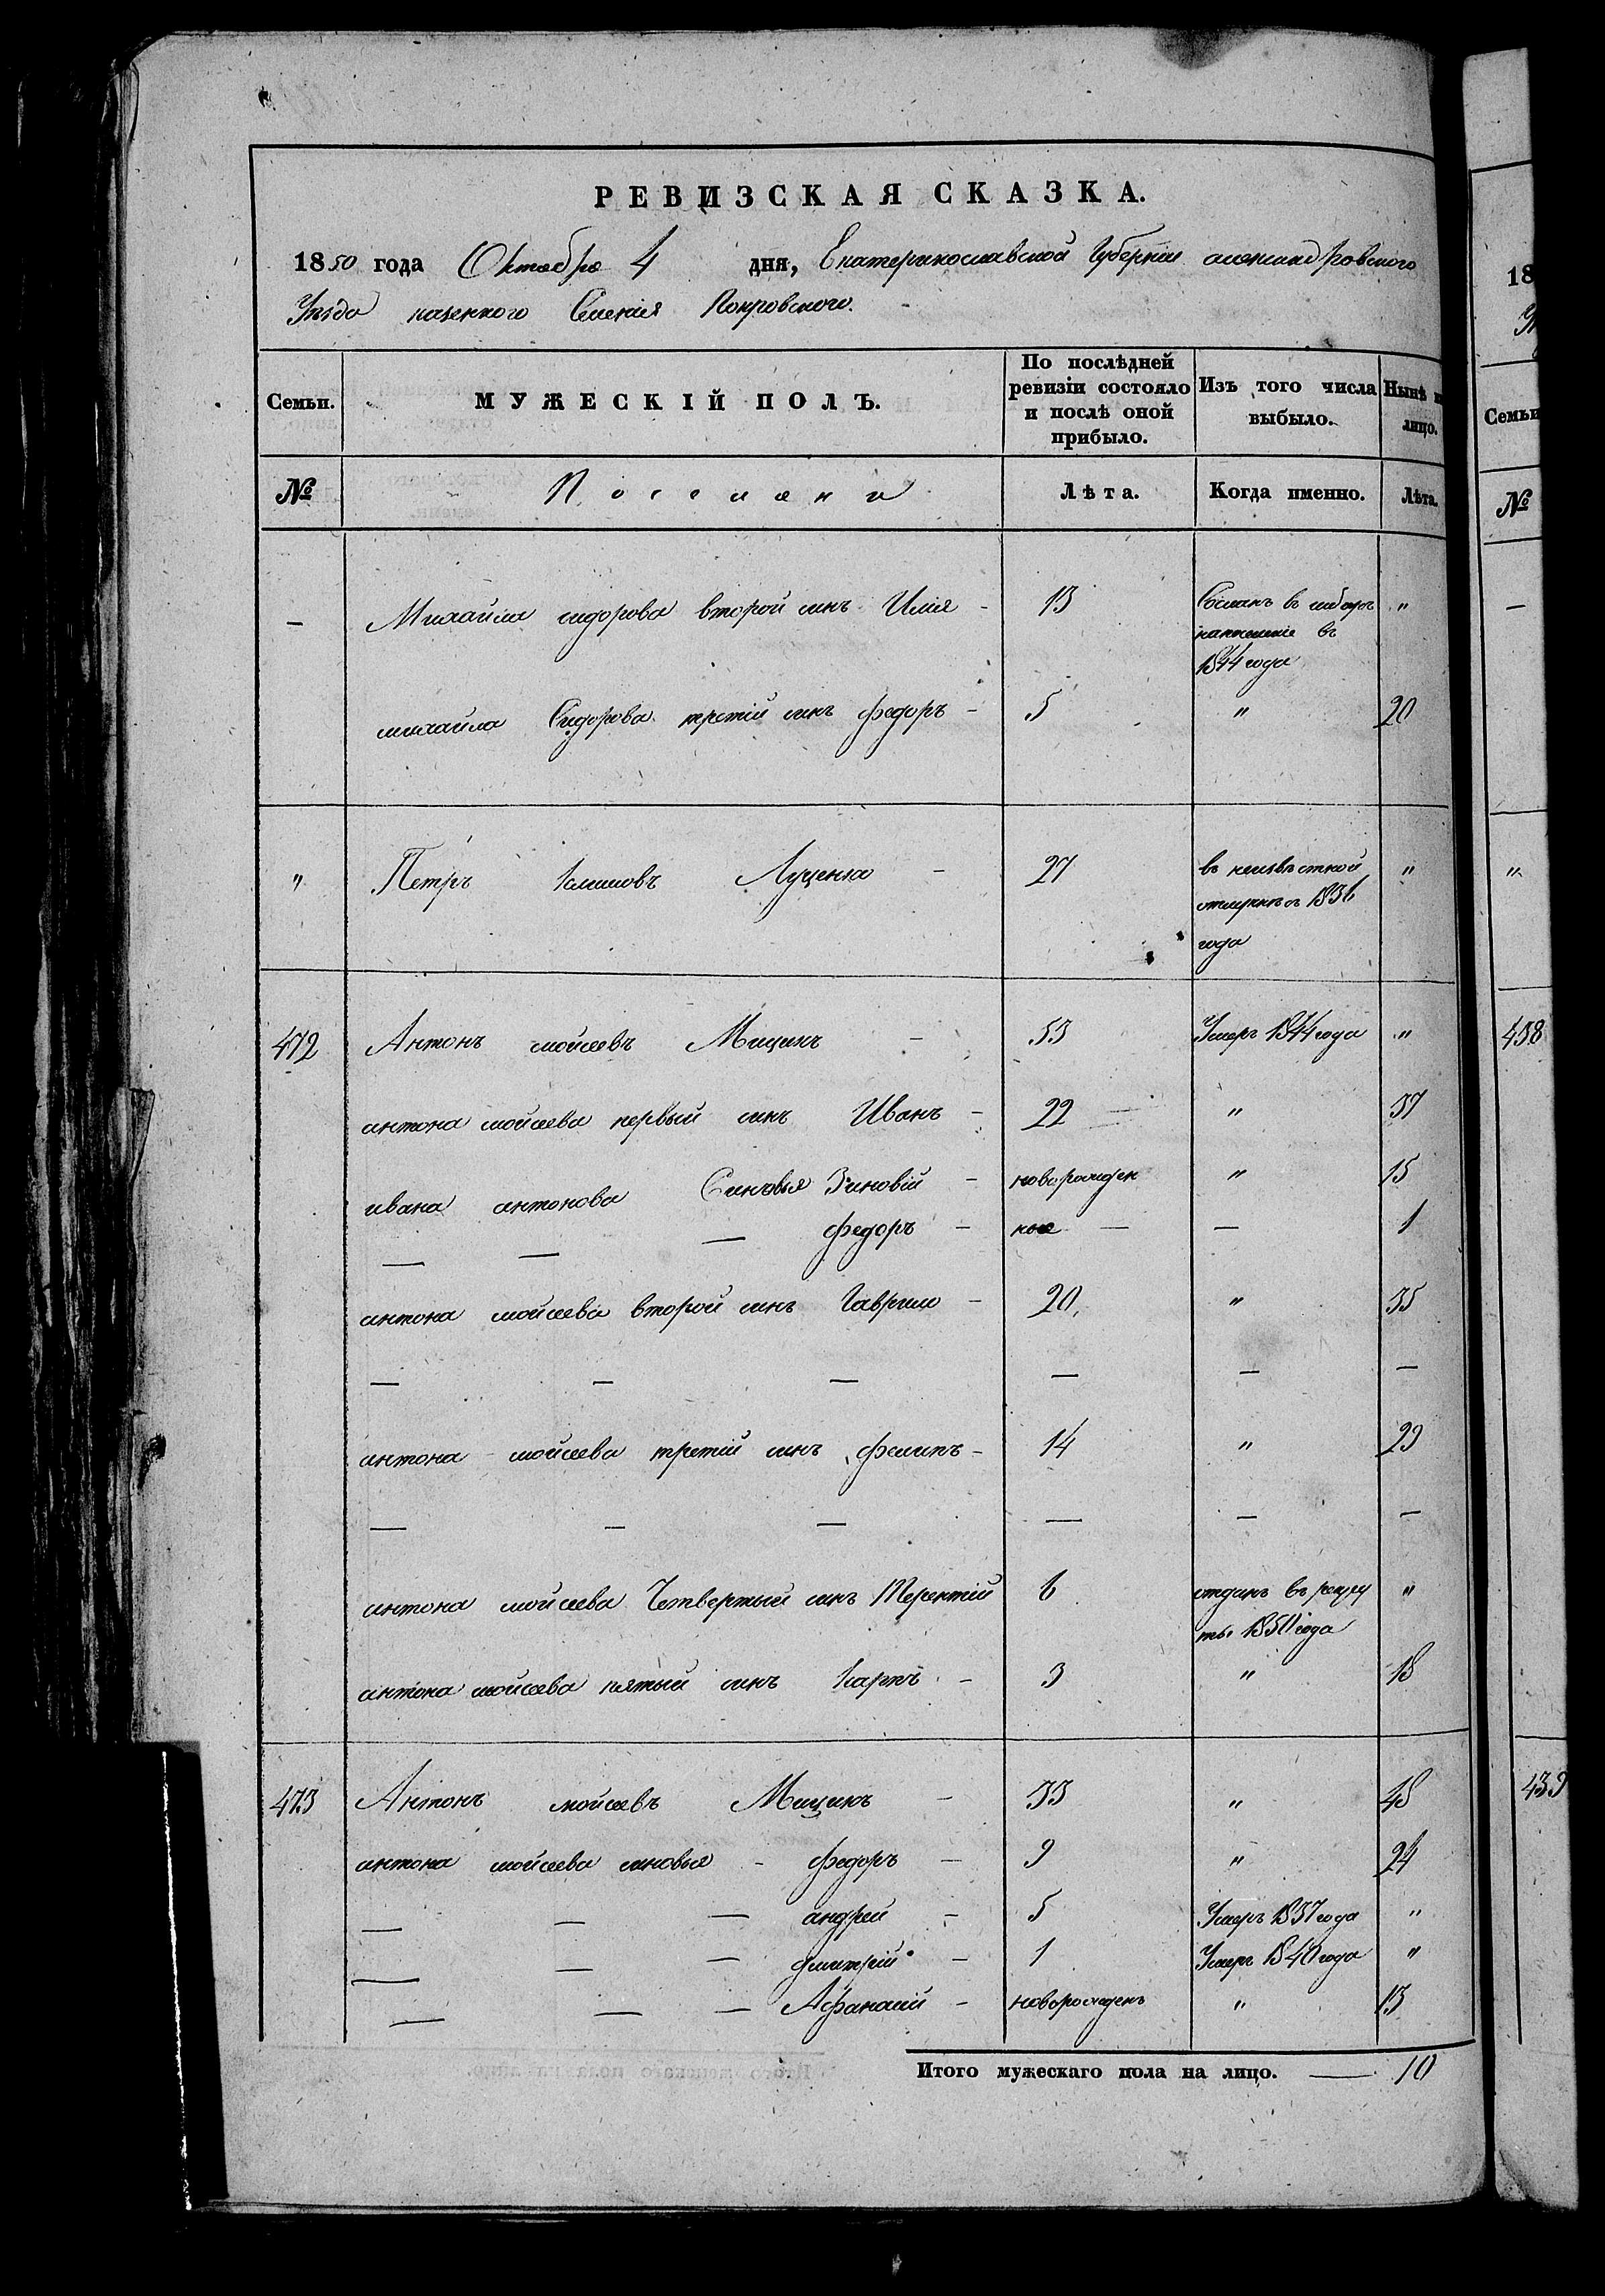 РЕВИЗСКАЯ СКАЗКА.
1850 года Октября 4 дня, Екатеринославской Губернии александровского
Уезда казенного Селения Покровского.
Семьи. МУЖЕСКІЙ ПОЛЪ. По послѣдней ревизіи состояло и послѣ оной прибыло. Изъ того числа выбыло. Нынѣ лицо.
№ Поселяни Лѣта. Когда именно. Лѣта.
— Михайла сидорова второй синъ Илія - 13 Сосланъ в сибирь "
напоселеніе въ
1844 года
михайла Сидорова третій синъ федоръ - 5 " 20
" Петръ Климовъ Луценко - 27 въ неизвѣстной "
отлучкѣ с 1836
года
472 Антонъ мойсеевъ Мицикъ - 53 Умеръ 1844 года "
антона мойсеева первый синъ Иванъ - 22 " 37
ивана антонова Синовья Зиновій - новорожден " 15
— — — федоръ - ные — — 1
антона мойсеева второй синъ Гаврило - 20 " 35
— — — — — —
антона мойсеева третій синъ филипъ - 14 " 29
— — — — — —
антона мойсеева Четвертый синъ Терентій 6 отданъ въ рекру "
ты 1850 года
антона мойсеева пятый синъ Карпъ - 3 " 18
473 Антонъ мойсеевъ Мицикъ - 33 " 48
антона мойсеева синовья - федоръ - 9 " 24
— — — андрей - 5 Умеръ 1837 года "
— — — дмитрій - 1 Умеръ 1840 года "
— — — Афанасій - новорожденъ " 13
Итого мужескаго пола на лицо. — 10
18
У
Семьи
№
—
"
438
439